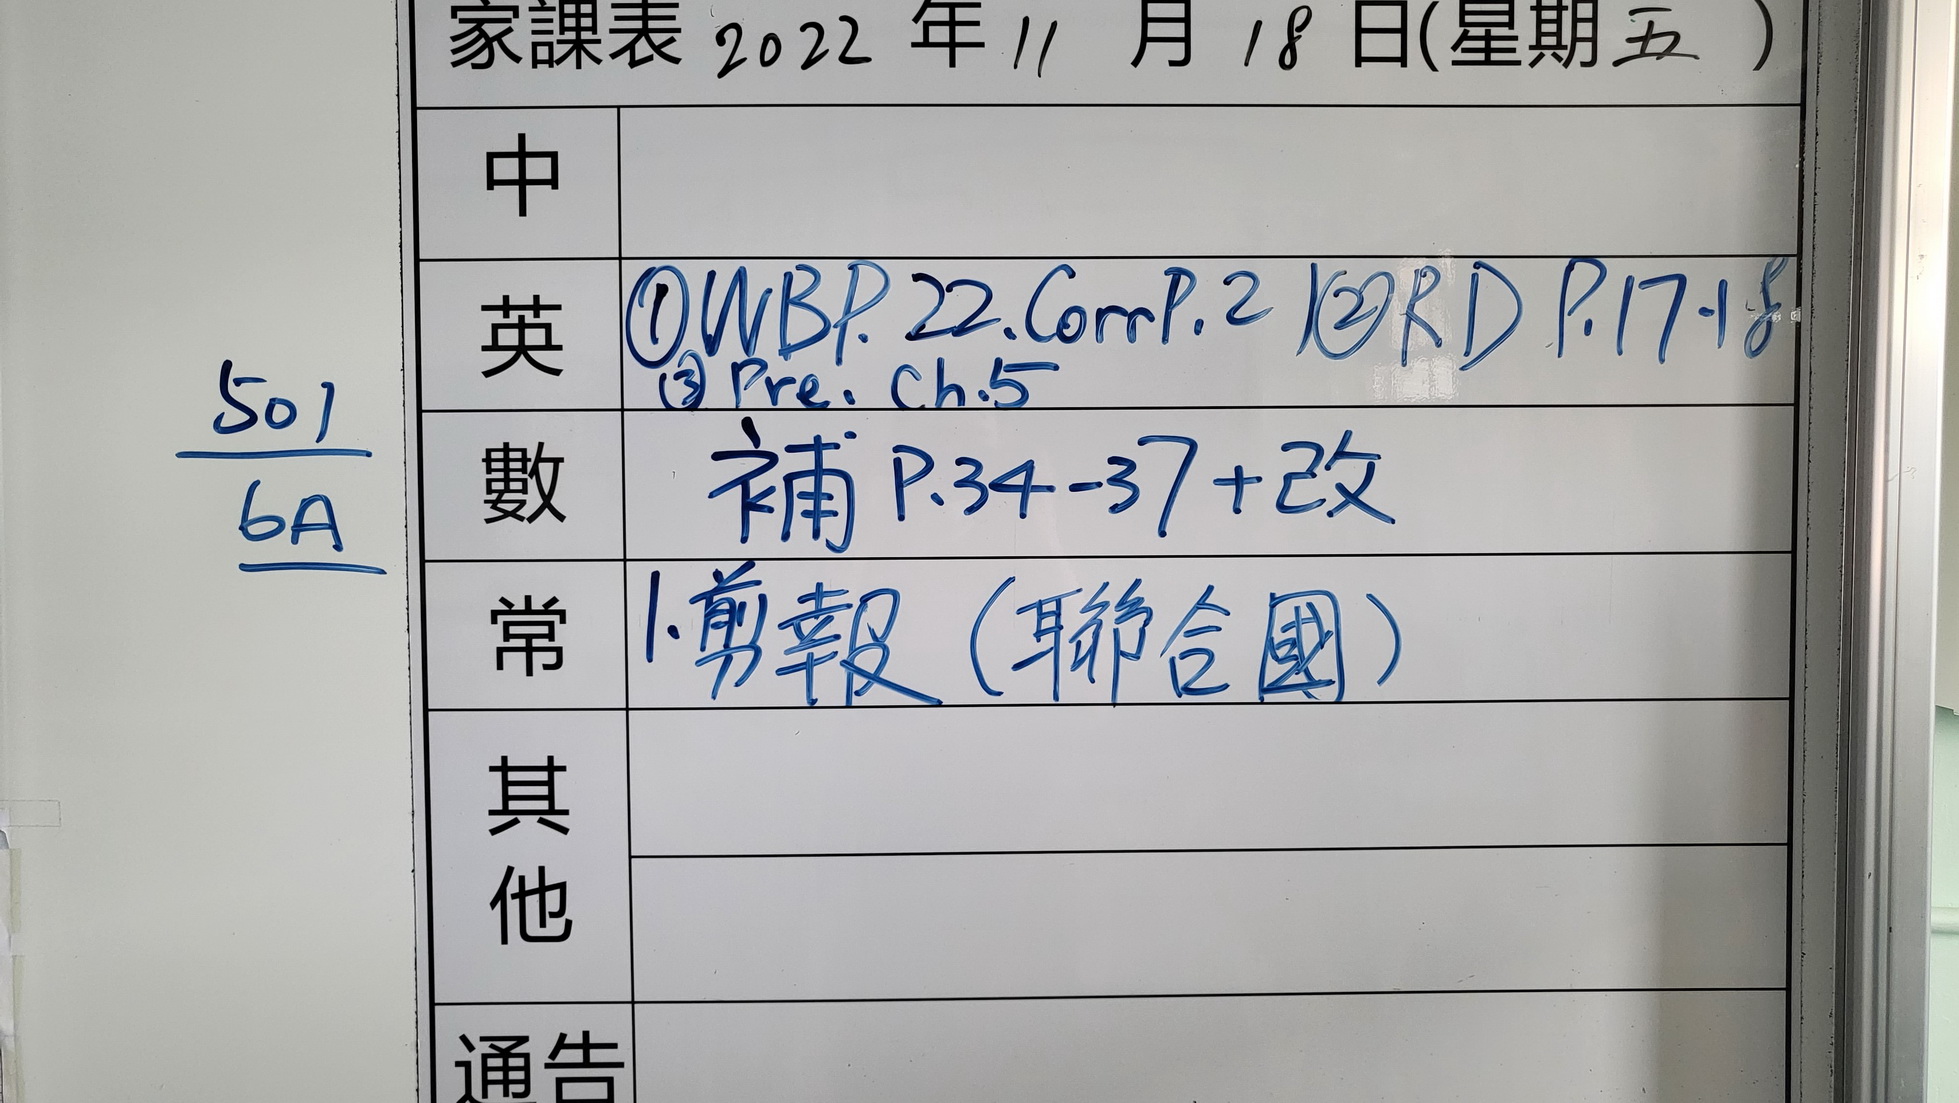 家課表 2022 年 11 月 18 日(星期五 )
中
英
①WBP.22.Corr P.21 ②RD P.17-18
③ Pre. Ch.5
501
6A
數
補 P.34-37+改
常
1.剪報 (聯合國)
其
他
通告